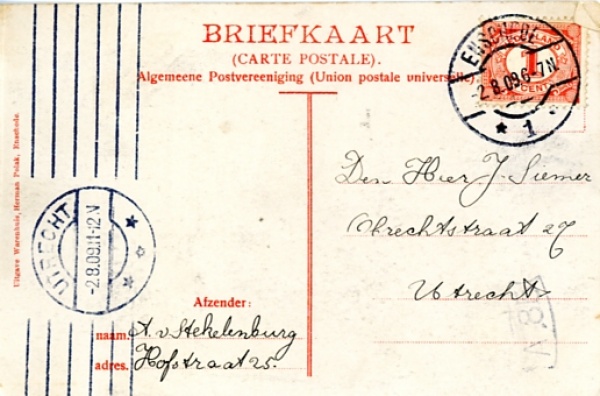 BRIEFKAART
(CARTE POSTALE).
Algemeene Postvereeniging (Union postale universelle)
Uitgave Warenhuis, Herman Polak, Enschede.
ENSCHEDE
2.8.09.6-7N
1
NEDERLAND
1
CENT
UTRECHT
-2.8.09.11-12N
Den Heer J. Siemer
Utrechtstraat 27
Utrecht
Afzender:
naam. A. v Stekelenburg
adres. Hofstraat 25.